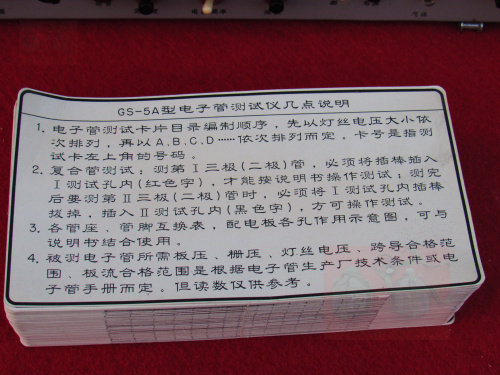 GS-5A型电子管测试仪几点说明
1. 电子管测试卡片目录编制顺序，先以灯丝电压大小依
次排列，再以A.B.C.D……依次排列而定，卡号是指测
试卡左上角的号码。
2. 复合管测试：测第Ⅰ三极(二极)管，必须将插棒插入
Ⅰ测试孔内(红色字)，才能按说明书操作测试；测完
后要测第Ⅱ三极(二极)管时，必须将Ⅰ测试孔内插棒
拔掉，插入Ⅱ测试孔内(黑色字)，方可操作测试。
3. 各管座、管脚互换表，配电板各孔作用示意图，可与
说明书结合使用。
4. 被测电子管所需板压、栅压、灯丝电压、跨导合格范
围、板流合格范围是根据电子管生产厂技术条件或电
子管手册而定。但读数仅供参考。